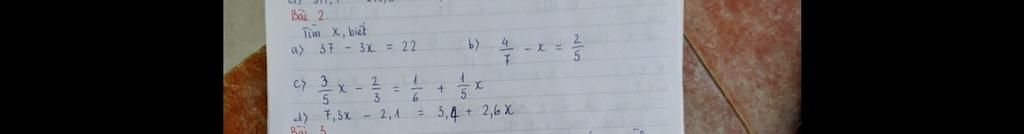 Bài 2.
Tìm x, biết
a) 37 - 3x = 22 b) 4/7 - x = 2/5
c) 3/5 x - 2/3 = 1/6 + 1/5 x
d) 7,3x - 2,1 = 3,4 + 2,6x
Bài 3